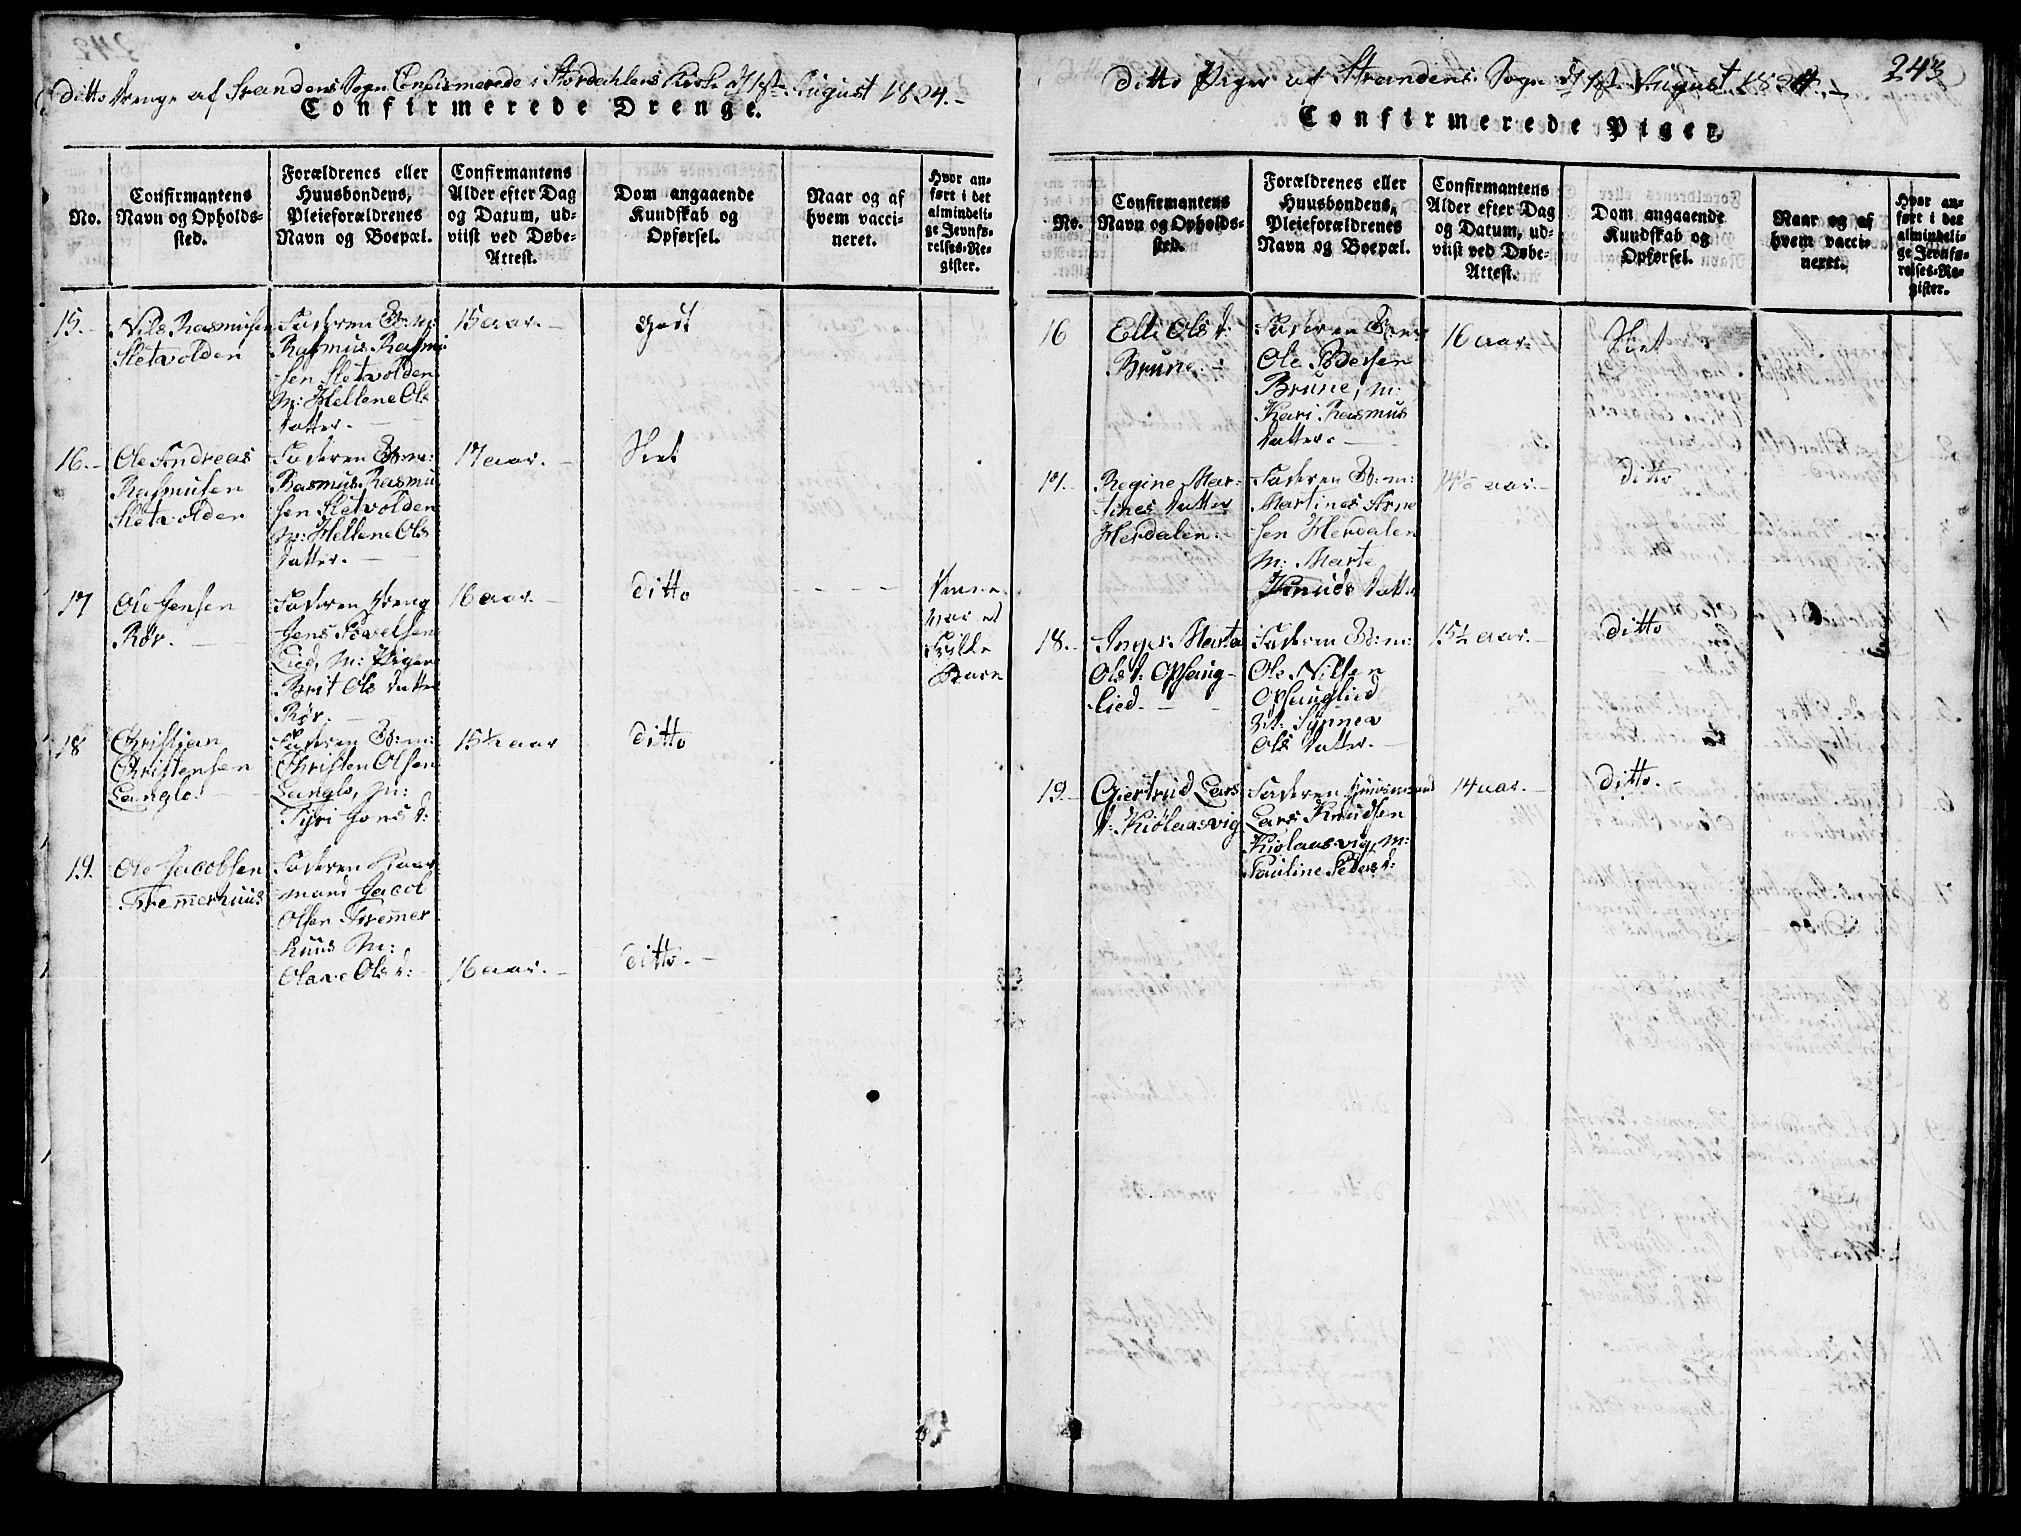 ditto Drenge af Strandens Sogn Confirmerede i Stordahlens Kirke d 1ste August 1824.-
Confirmerede Drenge.
No.
Confirmantens
Navn og Opholds-
sted.
Forældrenes eller
Huusbondens,
Pleieforældrenes
Navn og Boepæl.
Confirmantens
Alder efter Dag
og Datum, ud-
viist ved Døbe-
Attest.
Dom angaaende
Kundskab og
Opførsel.
Naar og af
hvem vacci-
neret.
Hvor an-
ført i det
almindeli-
ge Jevnfø-
relses-Re-
gister.
15.-
Nils Rasmusen
Sletvolden
Faderen B:m:
Rasmus Rasmu
sen Sletvolden
M: Hellene Ols
datter. -
15 aar. -
Godt
16.-
Ole Andreas
Rasmusen
Sletvolden
Faderen B:m:
Rasmus Rasmu
sen Sletvolden
M: Hellene Ols
datter. -
17 aar. -
Slet
17
Ole Jensen
Rör. -
Faderen Dreng
Jens Povelsen
Lied, M: Pigen
Brit Ols datter
Rör. -
16 aar. -
ditto
- - - -
Denne
var et
Barn
18
Christian
Christensen
Langlo. -
Faderen B:m:
Christen Olsen
Langlo, M:
Siri Jons d:
15½ aar
ditto
19.
Ole Jacobsen
Fremerhuus
Faderen
mand Jacob
Olsen Fremer
huus M:
Olave Ols d:
16 aar. -
ditto. -
243
ditto Piger af Strandens Sogn d 1ste August 1824. -
Confirmerede Piger.
No.
Confirmantens
Navn og Opholds-
sted.
Forældrenes eller
Huusbondens,
Pleieforældrenes
Navn og Boepæl.
Confirmantens
Alder efter Dag
og Datum, ud-
viist ved Døbe-
Attest.
Dom angaaende
Kundskab og
Opførsel.
Naar og af
hvem vacci-
neret.
Hvor an-
ført i det
almindeli-
ge Jevnfø-
relses-Re-
gister.
16
Elli Ols d:
Brune. -
Faderen B:m:
Ole Pedersen
Brune, M:
Kari Rasmus
datter. -
16 aar.
Slet
17.-
Regine Mar-
tines datter
Herdalen.
Faderen B:m:
Martines Arne
sen Herdalen
M: Marte
Knuds datter
aar. -
ditto
18.-
Inger Marta
Ols d: Opshaug-
lied. -
Faderen B:m:
Ole Nilsen
Opshauglied
M: Synneva
Ols datter. -
15½ aar. -
ditto
19.-
Giertrud Lars
d: Kiölaasvig
Faderen Huusmand
Lars Knudsen
Kiölaasvig, M:
Pauline Peders d:
14 aar. -
ditto. -